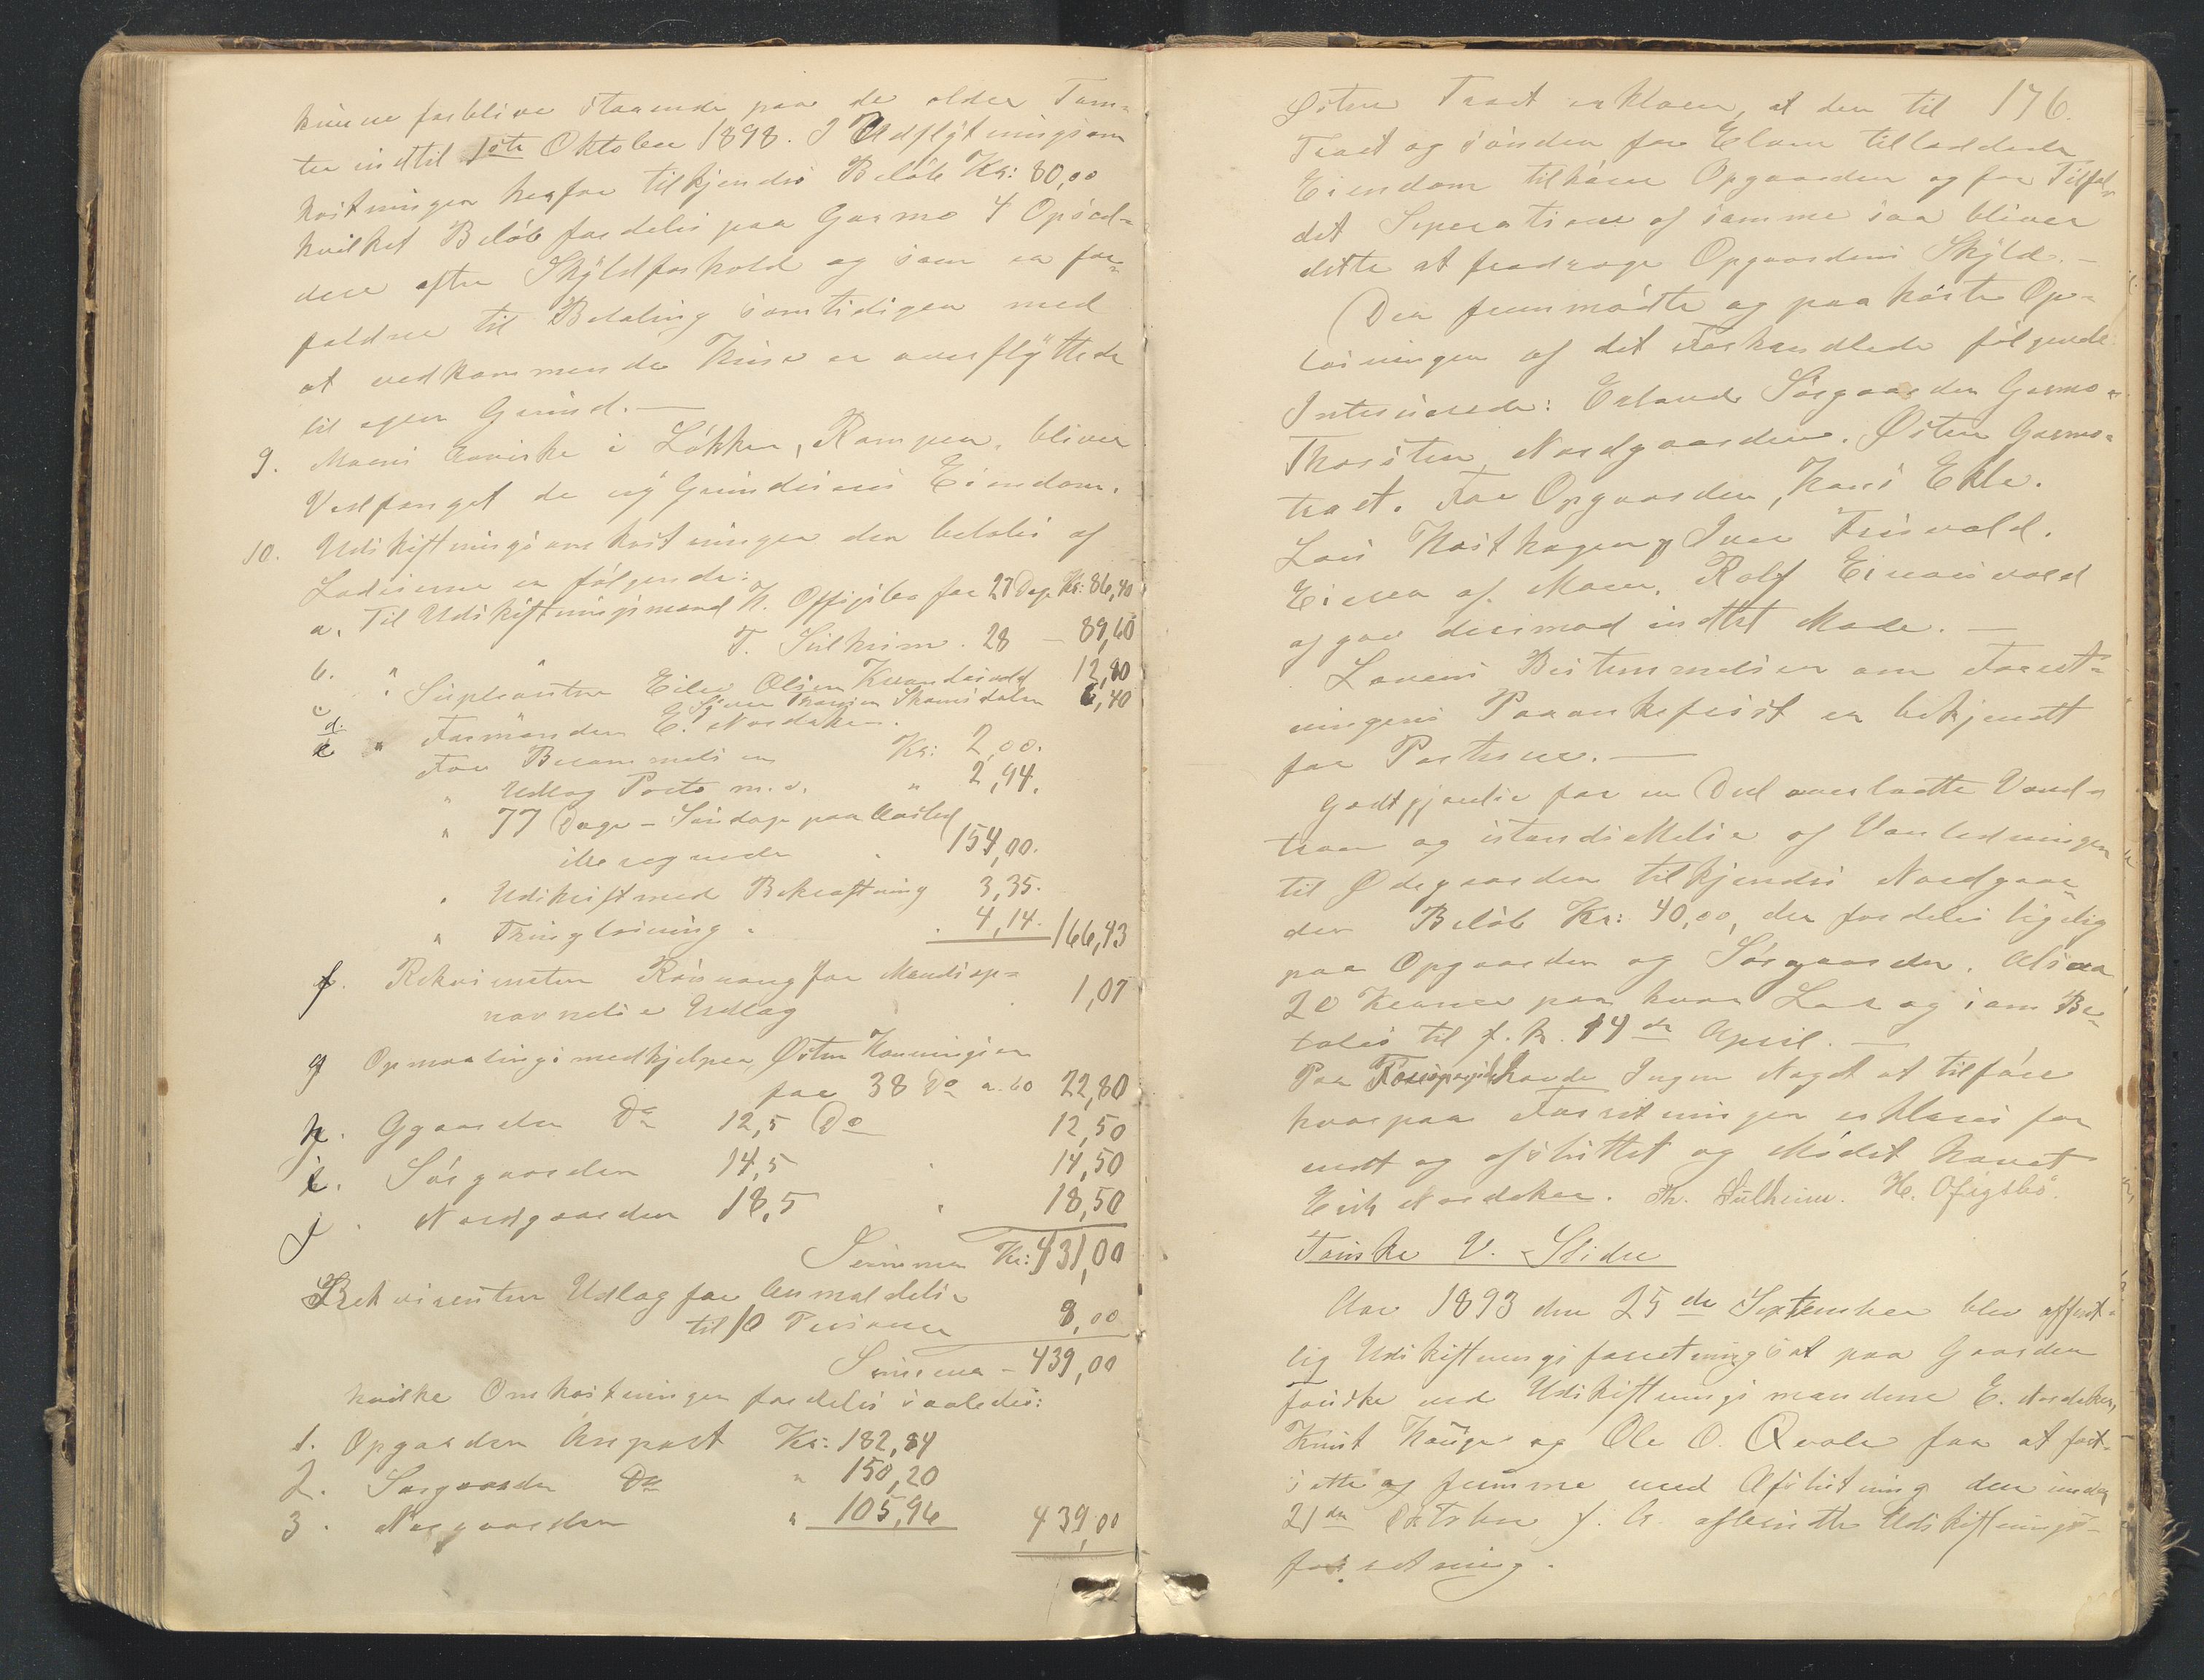 kunne forblive staaende paa de ældre Tom-
ter indtil 1ste Oktober 1898. I Udflytningsom
kostninger herfor tilkjendes Beløb Kr: 80,00
hvilket Beløb fordeles paa Garmo 4 Opsid-
dere efter Skyldforhold og som er for-
falden til Betaling samtidigen med
at vedkommende Huse er overflyttede
til egen Grund. —
9. Maens i Løkken, Rampen, bliver
Vedfanget de ny Grundeieres Eiendom.
10. Udskiftningsomkostninger der betales af
Lodeierne er følgende:
a. Til Udskiftningsmand H. Offigsbø for 27 Dage Kr: 86,40
b. " " T. Sulheim. 28 — 89,60
c " Supleanten Eilev Olsen Kvandesvold 12,80
d. Skamsdalen 6,40
e " Formanden E. Nordaker.
For Berammelsen Kr: 2,00.
" Udlag Porto m.v. " 2,94.
" 77 Dage - Søndage paa Aasted
iberegnede . 154,00.
" Udskrift med Bekræftning 3,35.
" Thinglæsning . 4,14. 166,43
f. Rekvirenten for Mandsop-
nævnelse Udlag . 1,07
g Opmaalingsmedhjelper, Østen Hemmingsen
for 38 Do a. 60 22,80
h. Opgaarden Do 12,5 Do 12,50
i. Sørgaarden 14,5 " 14,50
j. Nordgaarden 18,5 " 18,50
Summa Kr: 431,00
Rekvirenten Udlag for Anmeldelse
til 10 Personer 8,00
Summa - 439,00
hvilke Omkostninger fordeles saaledes:
1. Opgaarden Anpart Kr: 182,84
2. Sørgaarden Do " 150,20
3. Norgaarden " 105,96 439,00
176.
Østen Træet erklærer, at den til
Træet og sønden for Elven tilladdede
Eiendom tilhører Opgaarden og for Tilfæl-
det Seperation af samme saa bliver
dette at fradrage Opgaardens Skyld. —
Der fremmødte og paahørte Op-
læsningen af det Forhandlede følgende
Interesserede: Erland Sørgaarden Garmo "
Thorsten Nordgaarden. Østen Garmo-
træet. For Opgaarden, Hans Ekle.
Lars Kosthagen, Iver Frisvold.
Einer af Moen. Rolf Einarsvold
og gav derimod indtet Møde. —
Lovens Bestemmelser om Forret-
ningens Paaankefrist er bekjendt
for Parterne. —
Godtgjørelse for en Del overladte Vand-
traa og istandsættelse af Vanledningen
til Ødegaarden tilkjendes Nordgaar-
den Beløb Kr: 40,00, der fordeles ligelig
paa Opgaarden og Sørgaarden. Altsaa
20 Kroner paa hver Lod og som Be-
tales til f. k. 14de April. —
Paa Forespørgsel havde Ingen Noget at tilføre
hvorpaa Forretningen erklæres for
endt og afsluttet og Mødet hævet
Erik Nordaker. Th. Sulheim. H. Ofigsbø.
Fonske V. Slidre
Aar 1893 den 25de September blev offent-
lig Udskiftningsforretning sat paa Gaarden
Fonske ved Udskiftningsmændene E. Nordaker,
Knut Hauge og Ole O. Qvale for at fort-
sætte og fremme med Afslutning den under
21de Oktober f. A. afbrudte Udskiftnings-
forretning.